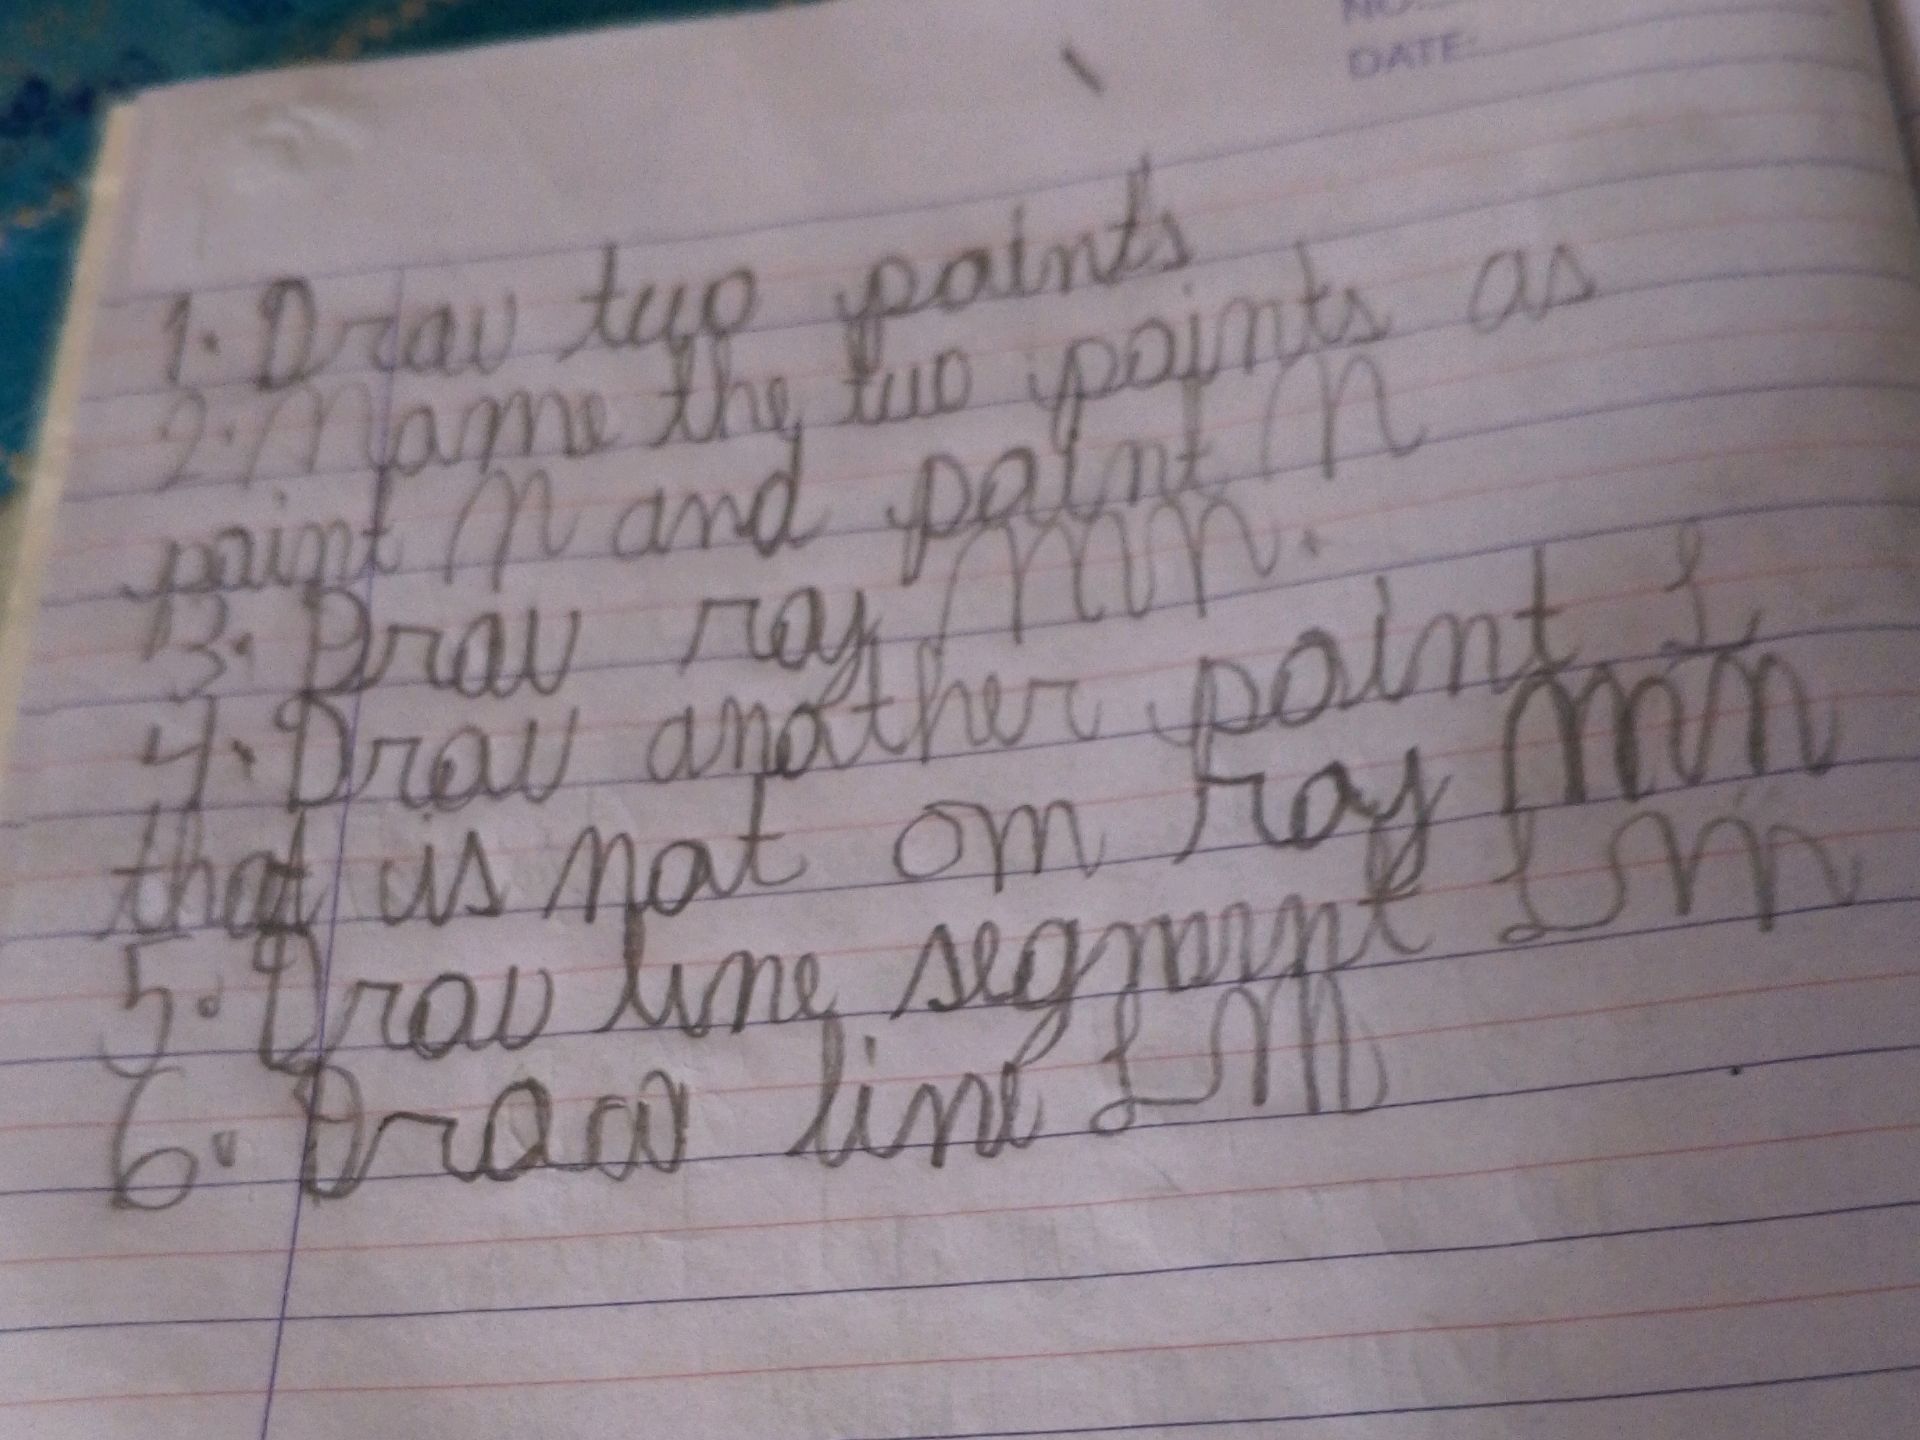 NO.
DATE:
1. Draw two points
2. Name the two points as
point N and point N
3. Draw ray MN.
4. Draw another point L
that is not on ray MN
5. Draw line segment LM
6. Draw line LM